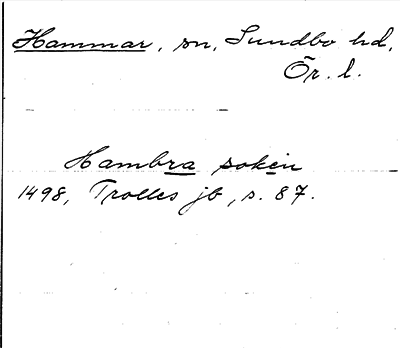 Hammar, sn, Sundbo hd,
Ör. l.
Hambra soken
1498, Trolles jb, s. 87.